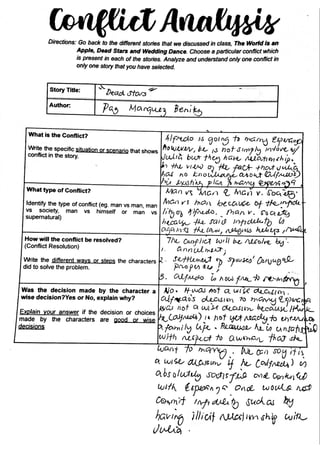 Conflict Analysis
Directions: Go back to the different stories that we discussed in class, The World is an
Apple, Dead Stars and Wedding Dance. Choose a particular conflict which
is present in each of the stories. Analyze and understand only one conflict in
only one story that you have selected.
Story Title:
Dead Stars
Author:
Paz Marquez Benitez
What is the Conflict?
Write the specific situation or scenario that shows
conflict in the story.
Alfredo is going to marry Esperanza
However, he is not simply in love of
Julia but they have relationship.
in the view of the fact that Julia
has no knowledge about (Alfredo's)
his existing plan to marry Esperanza
What type of Conflict?
Identify the type of conflict (eg. man vs man, man
vs society, man vs himself or man vs
supernatural)
Man vs Man & Man v. Society.
Man vs man because of the
of Alfredo. Man v. Society
because the said infidelity is
against the law,
How will the conflict be resolved?
(Conflict Resolution)
Write the different ways or steps the characters
did to solve the problem.
The conflict will be resolve by:
1. annulment;
2. settlement of spouses' conjugal
properties;
3. Alfredo is now free to
Was the decision made by the character a
wise decision?Yes or No, explain why?
Explain your answer if the decision or choices
made by the characters are good or wise
decisions
No. It was not a wise decision.
Alfredo's decision to marry Esperanza
was not a wise decision because
he (Alfredo) is not yet ready to enter
a family life. Because he is
with respect to a woman that she
want to marry. We can say it is
a wise decision if he (Alfredo) is
absolutely satisfied and contented
with Esperanza and would not
commit infidelity such as by
having illicit relationship with
Julia.